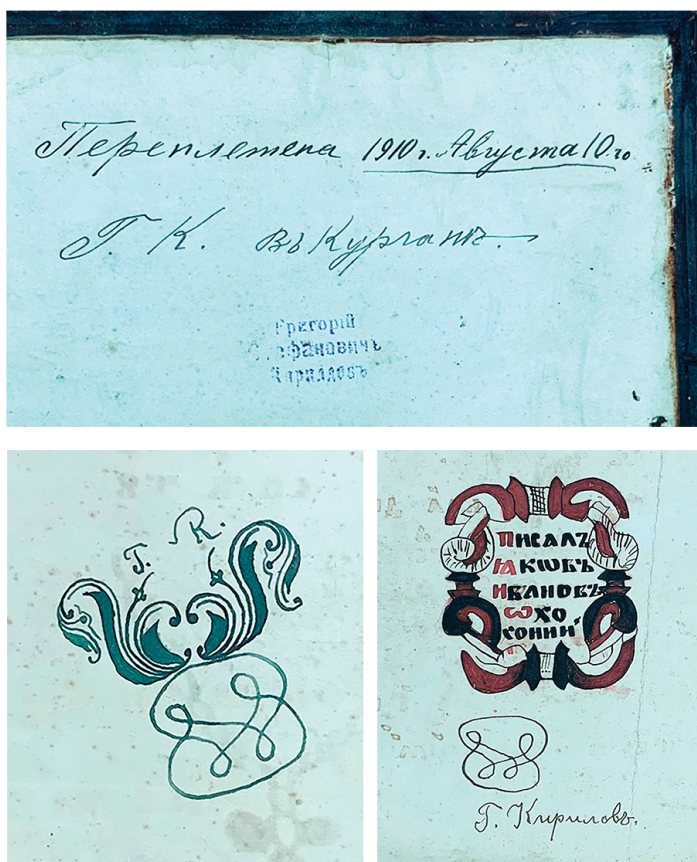 Переплетена 1910 г. Августа 10 го
Г К. въ Курганѣ.
Григорій
Стефановичъ
Кирилловъ
Г. К.
Писалъ
Іаковъ
Ивановъ
Г. Кириловъ.